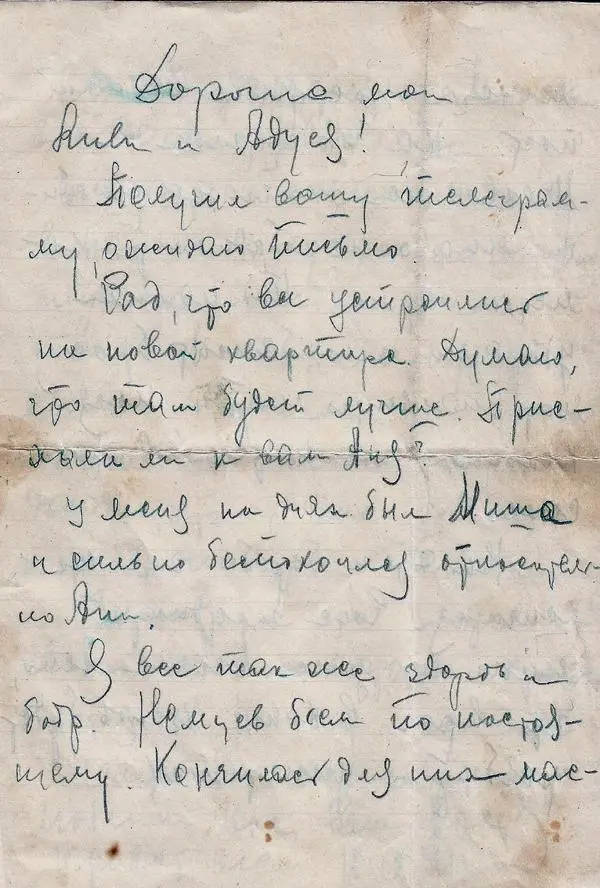 Дорогие мои
и Адуся!
Получил вашу телеграм-
му, ожидаю письмо.
Рад, что вы устроились
на новой квартире. Думаю,
что там будет лучше. Прие-
хала ли к вам Аня?
У меня на днях был Миша
и сильно беспокоился относитель-
но Ани.
Я все так же здоров и
бодр. Немцев бьем по настоя-
щему. Кончилась для них мас-